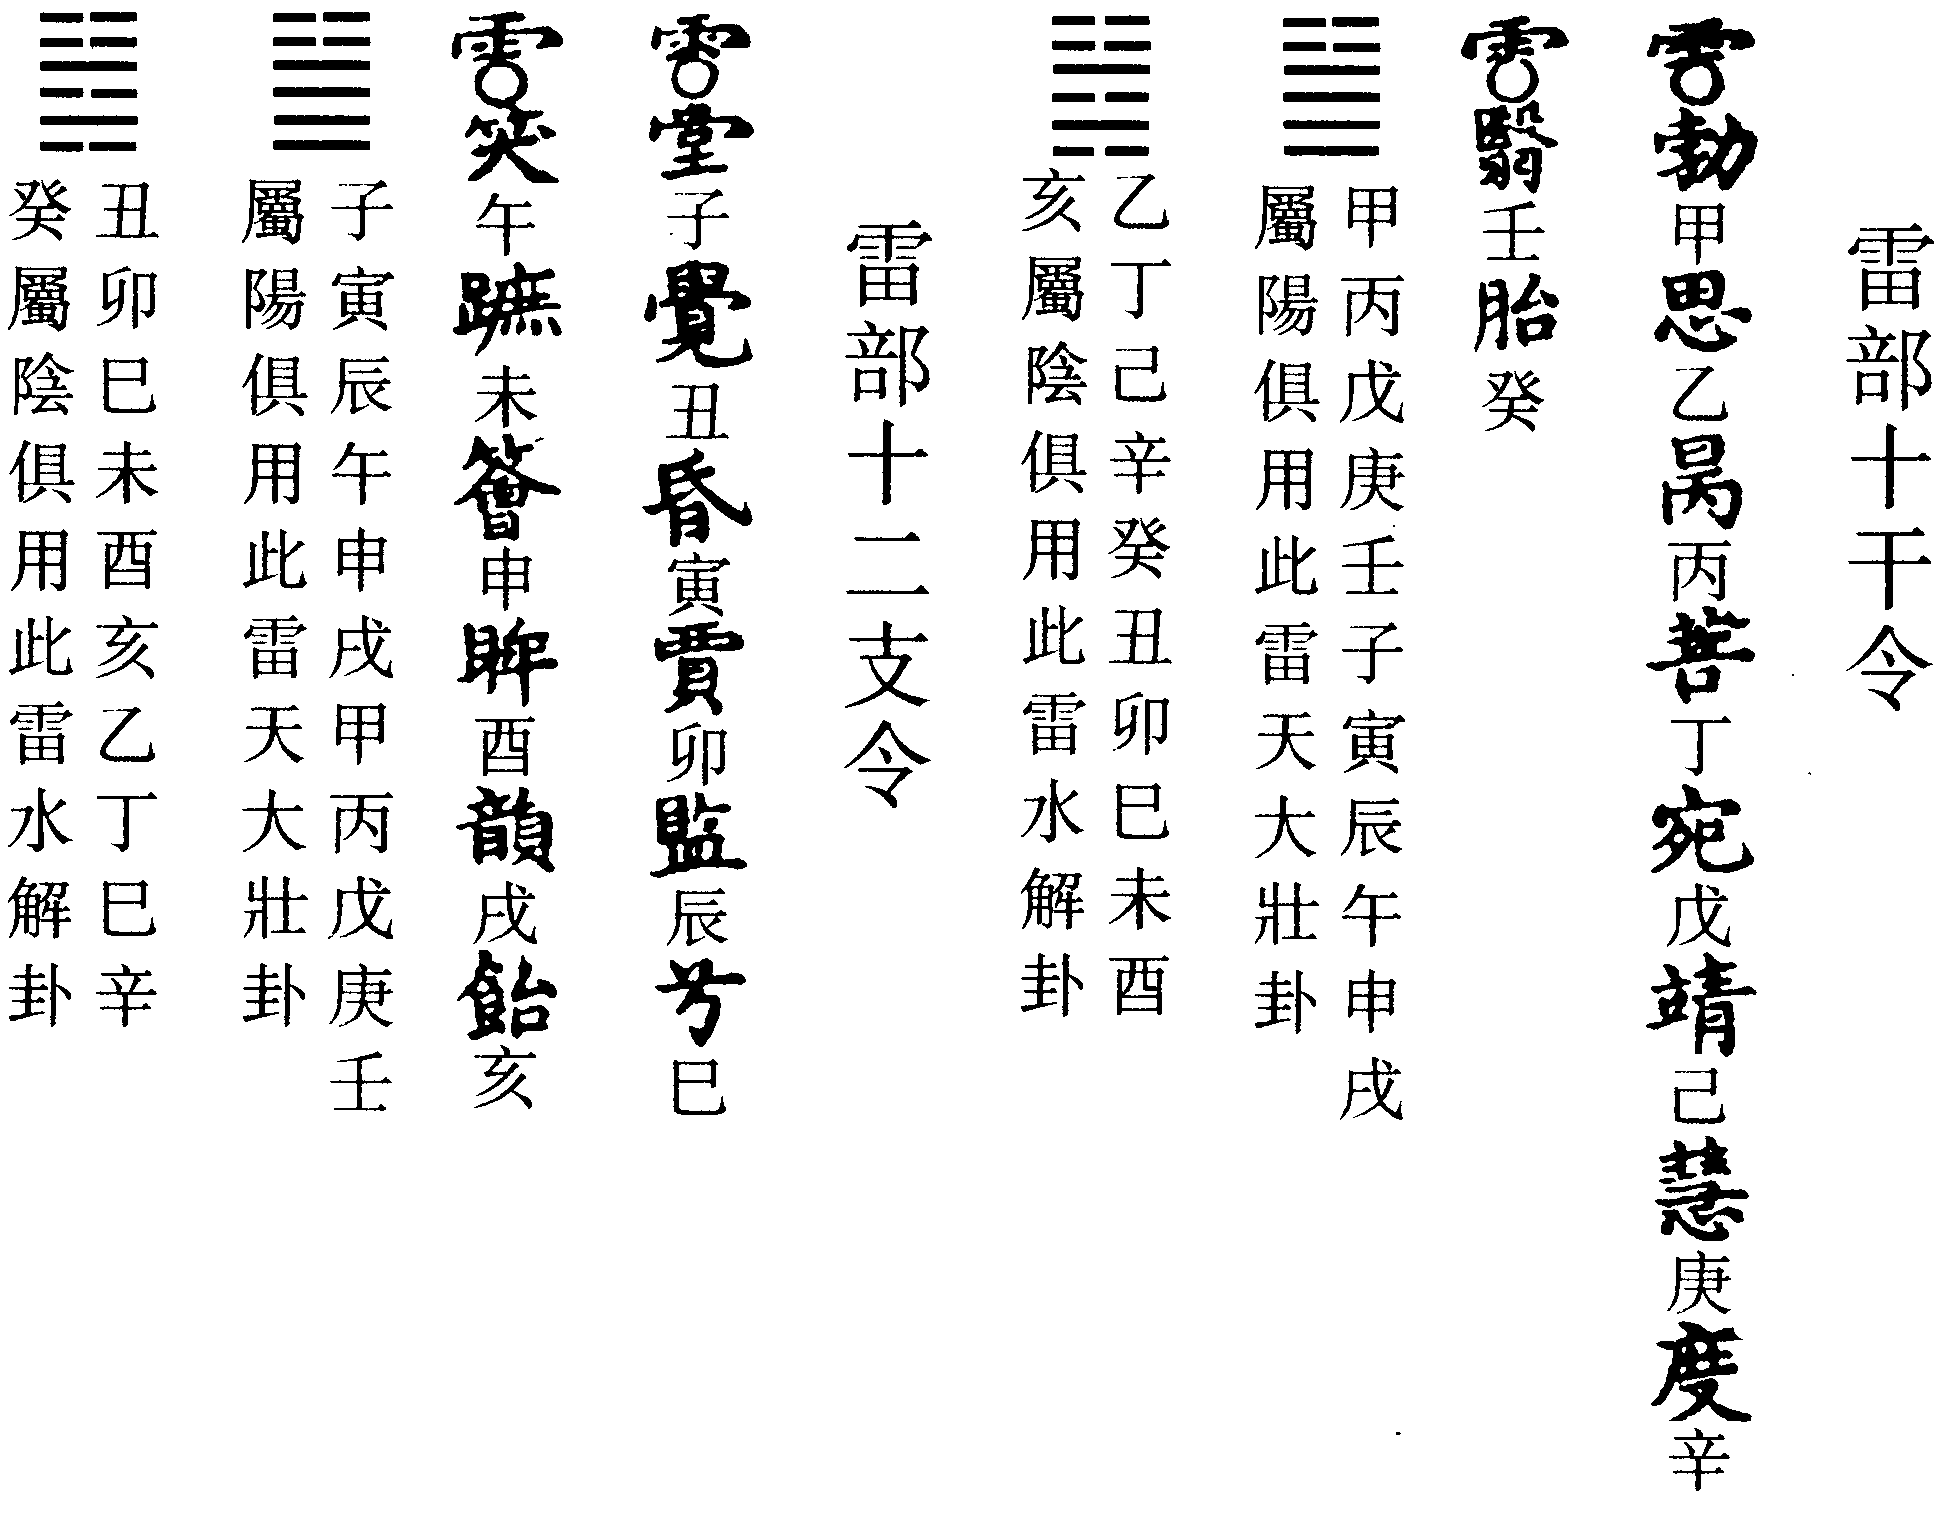 雷部十干令
勃甲思乙昺丙菩丁宛戊靖己慧庚度辛
翳壬胎癸
甲丙戊庚壬子寅辰午申戌
屬陽俱用此雷天大壯卦
乙丁己辛癸丑卯巳未酉
亥屬陰俱用此雷水解卦
雷部十二支令
堂子覺丑昏寅賈卯監辰兮巳
笑午蹠未薈申眸酉韻戌飴亥
子寅辰午申戌甲丙戊庚壬
屬陽俱用此雷天大壯卦
丑卯巳未酉亥乙丁巳辛
癸屬陰俱用此雷水解卦